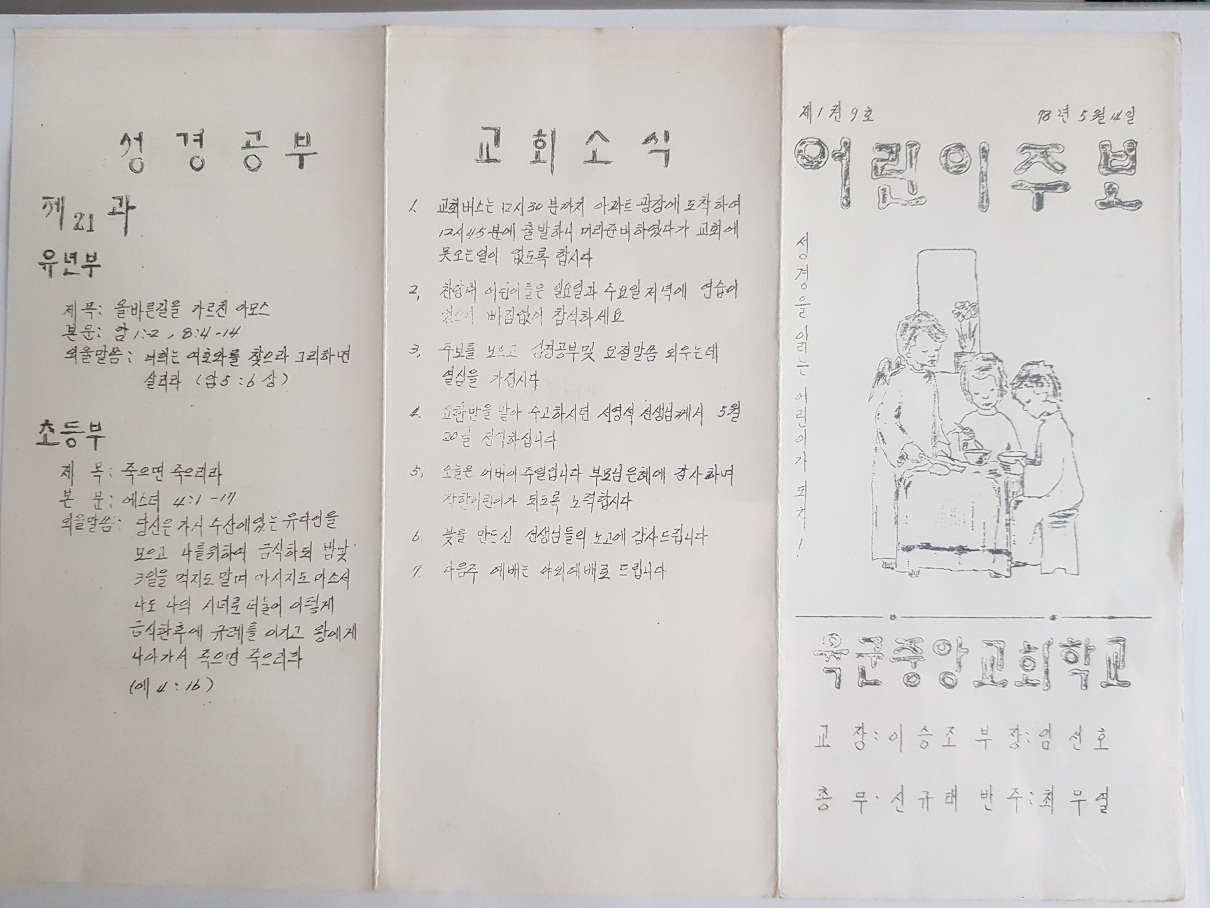 성경공부
제21과
유년부
제목: 올바른길을 가르친 아모스
본문: 암 1:2, 8:4-14
외울말씀: 너희는 여호와를 찾으라 그리하면
살리라 (암5:6상)
초등부
제 목: 죽으면 죽으리라
본 문: 에스더 4:1-17
외울말씀: 당신은 가서 수산에있는 유다인을
모으고 나를위하여 금식하되 밤낮
3일을 먹지도 말며 마시지도 마소서
나도 나의 시녀로 더불어 이렇게
금식한후에 규례를 어기고 왕에게
나아가서 죽으면 죽으리라
(에 4:16)
교회소식
1. 교회버스는 12시30분까지 아파트 광장에 도착하여
12시45분에 출발하니 미리준비하였다가 교회에
못오는일이 없도록 합시다
2. 찬양대 어린이들은 일요일과 수요일 저녁에 연습이
있으니 빠짐없이 참석하세요
3. 주보를 모으고 성경공부및 요절말씀 외우는데
열심을 가집시다
4. 요한반을 맡아 수고하시던 서영석 선생님께서 5월
20일 전역하십니다
5. 오늘은 어버이주일입니다 부모님은혜에 감사하며
착한어린이가 되도록 노력합시다
6. 붓을 만드신 선생님들의 노고에 감사드립니다
7. 다음주 예배는 야외예배로 드립니다
제1권9호 78년 5월 14일
어린이주보
성경을 읽는 어린이가 되자!
육군중앙교회학교
교 장: 이승조 부 장: 엄선호
총 무: 신규태 반 주: 최우열